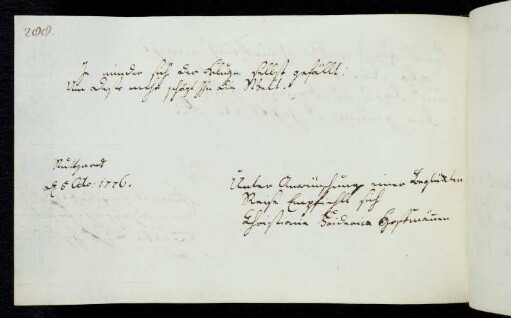 288.
Je minder sich der Kluge selbst gefällt:
Um desto mehr schäzt Ihn die Welt.
Stuttgardt
d. 5 Octo: 1776.
Unter Anwünschung einer Beglückten
Reise Empfiehlt sich
Christiana Friderica Hoffmännin